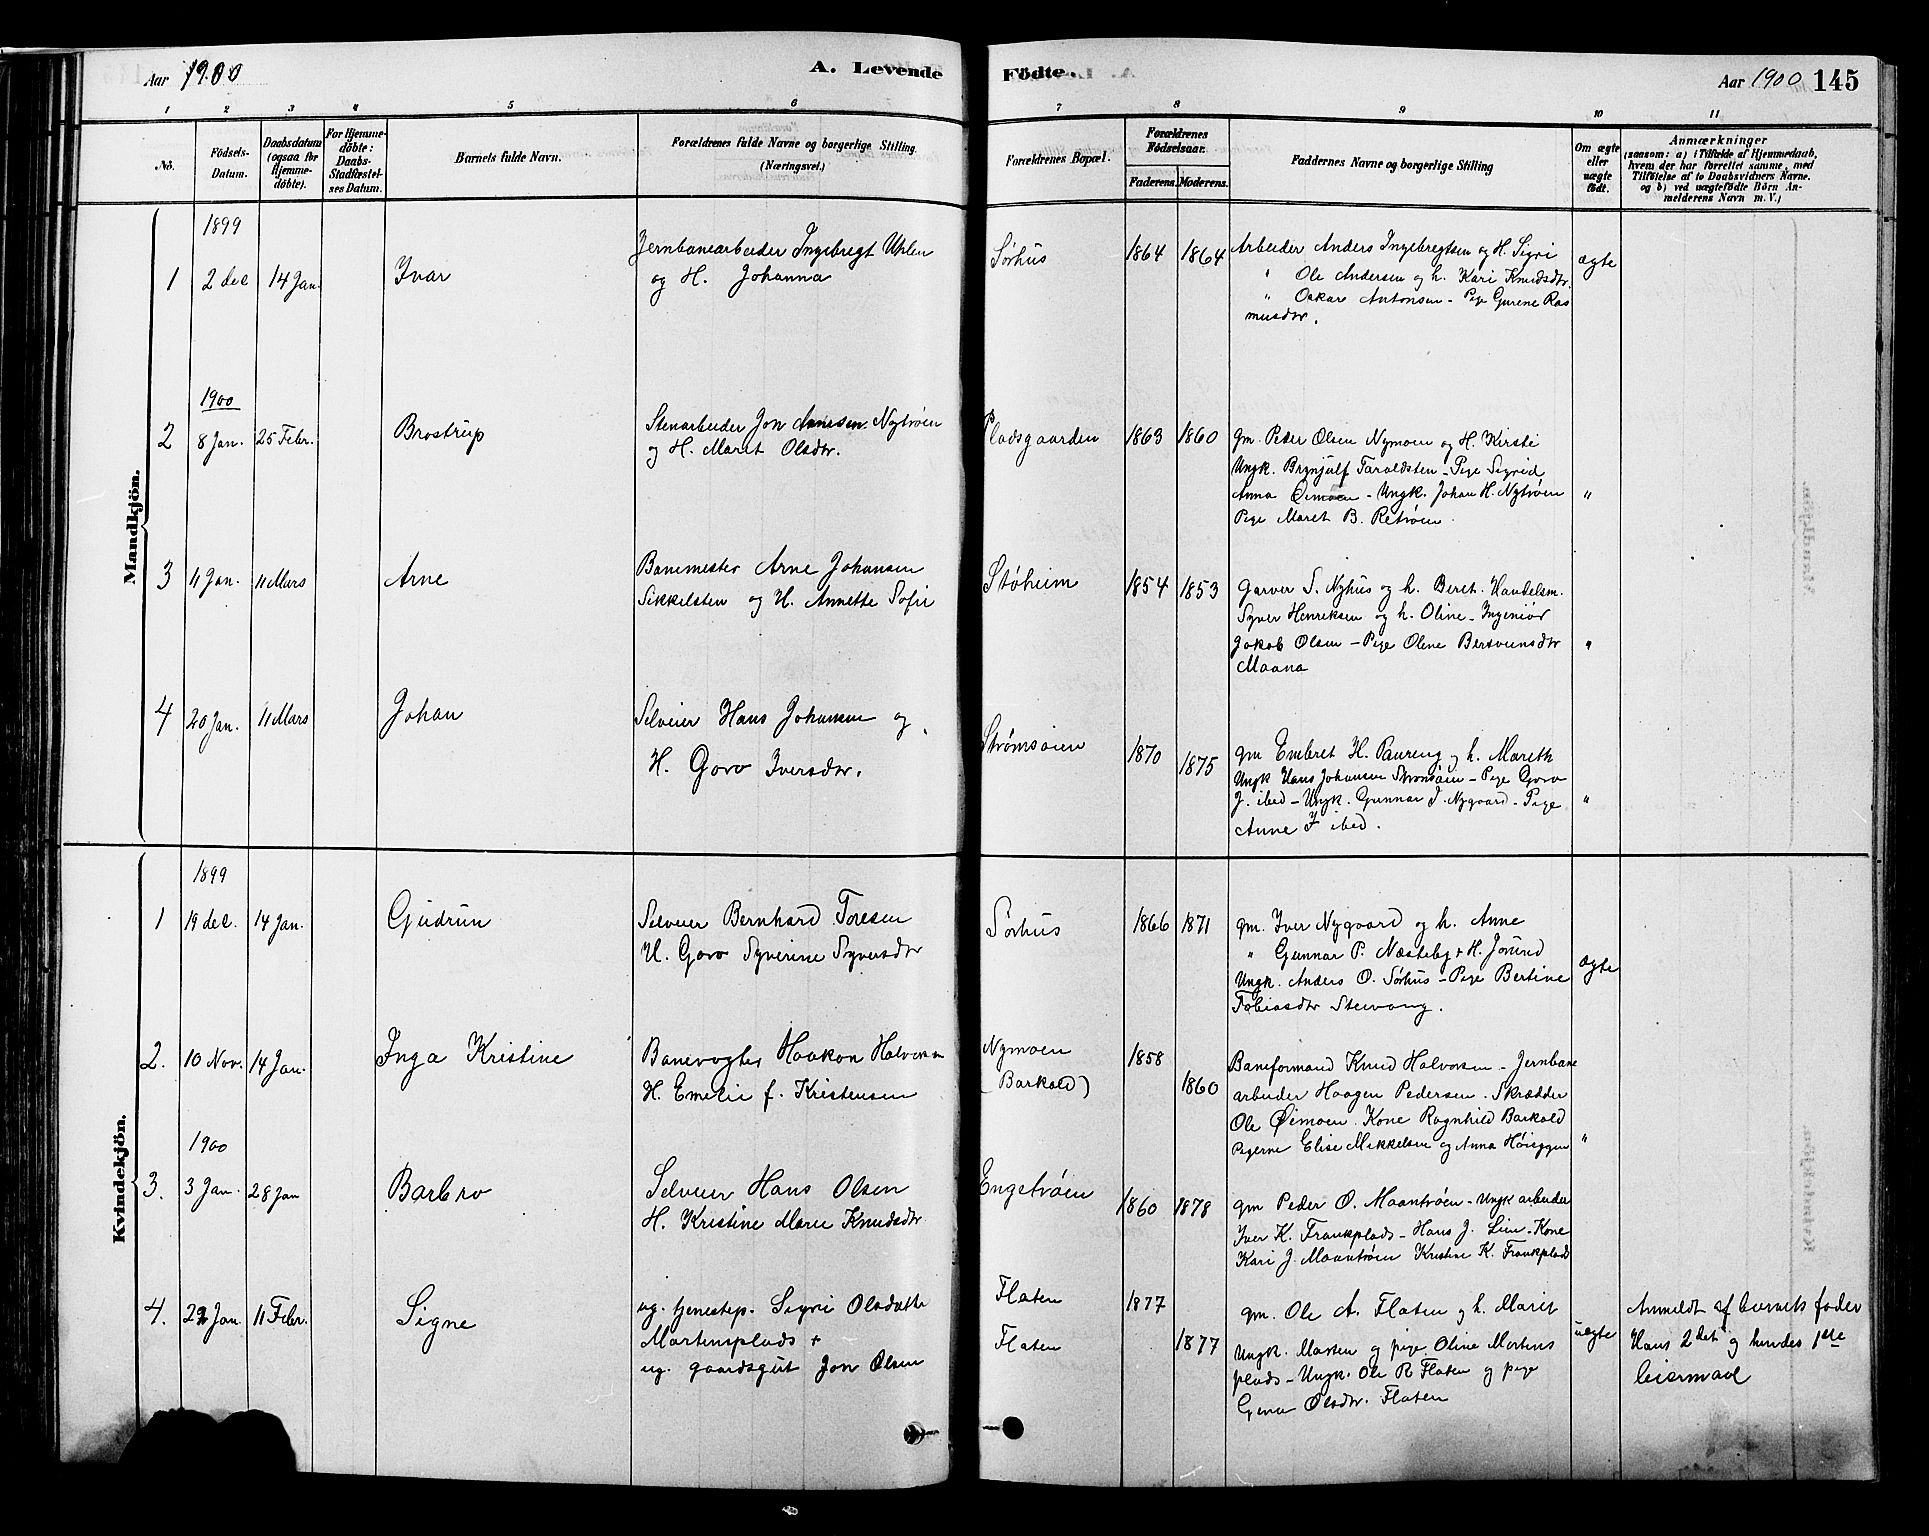 Aar 1900
A. Levende Födte.
Aar 1900 145
1 2 3 4 5 6 7 8 9 10 11
No.
Födsels-Datum.
Daabsdatum (ogsaa for Hjemme-döbte).
For Hjemme-döbte: Daabs-Stadfæstel-ses Datum.
Barnets fulde Navn.
Forældrenes fulde Navne og borgerlige Stilling (Næringsvei.)
Forældrenes Bopæl.
Forældrenes Födselsaar.
Faderens. Moderens.
Faddernes Navne og borgerlige Stilling
Om ægte eller uægte födt.
Anmærkninger
(saasom: a) i Tilfælde af Hjemmedaab,
hvem der har forrettet samme, med
Tilföielse af to Daabsvidners Navne.
og b) ved uægtefödte Börn An-
melderens Navn m. V.)
Mandkjön.
1899
1 2 dec 14 Jan. Ivar
Jernbanearbeider Ingebregt Uhlen
og H. Johanna
Sørhus 1864 1864
Arbeider Anders Ingebregtsen og H. Sigri
" Ole Andersen og h. Kari Knudsdtr.
" Oskar Antonsen - Pige Gurene Ras
musdtr.
ægte
1900
2 8 Jan. 25 Febr. Brostrup
Stenarbeider Jon Arnesen Nytrøen
og H. Maret Olsdtr.
Pladsgaarden 1863 1860
gm. Peder Olsen Nymoen og H. Kirsti
Ungk. Brynjulf Taraldsten - Pige Sigrid
Anna Øimoen - Ungk. Johan H. Nytrøen
Pige Maret B. Retrøen.
"
3 11 Jan. 11 Mars Arne
Banemester Arne Johansen
Sikkilsten og H. Annette Sofie
Støheim 1854 1853
Garver S. Nyhus og h. Beret. Handelsm.
Syver Henriksen og h. Oline - Ingeniør
Jakob Olsen - Pige Olene Bersvensdtr
Maana
"
4 20 Jan. 11 Mars Johan
Selveier Hans Johansen og
H. Goro Iversdtr.
Strømsøien 1870 1875
gm Embret H. Paureng og h. Mareth
Ungk Hans Johansen Strømsøien - Pige Goro
J. ibed - Ungk. Gunnar J. Nygaard - Pige
Anne I ibed.
"
Kvindekjön.
1899
1 19 dec. 14 Jan. Gudrun
Selveier Bernhard Toresen
H. Goro Syverine Syversdtr
Sørhus 1866 1871
gm. Iver Nygaard og h. Anne
" Gunnar P. Næsteby + H. Jorund
Ungk. Anders O. Sørhus - Pige Bertine
Tobiasdtr Steivang.
ægte
2. 10 Nov. 14 Jan. Inga Kristine
Banevogter Haakon Halvorsen
H. Emelie f. Kristensen
Nymoen (Barkald) 1858 1860
Baneformand Knud Halvorsen - Jernbane
arbeider Haagen Pedersen. Skrædder
Ole Øimoen. Kone Ragnhild Barkald
Pigerne Elise Mikkelsen og Anna Høieggen
"
1900
3. 3 Jan. 28 Jan Barbro
Selveier Hans Olsen
H. Kristine Marie Knudsdtr.
Engetrøen 1860 1878
gm Peder O. Maantrøen - Ungk arbeider
Iver K. Frankplads - Hans J. Lien - Kone
Kari J. Maantrøen Kristine K. Frankplads
4. 22 Jan. 11 Febr. Signe
ug. tjenestep. Sigri Olsdatte
Martinsplads +
ug. gaardsgut Jon Olsen
Flaten 1877
Flaten 1877
gm. Ole A. Flaten og h. Marit
Ungk. Morten og pige Oline Mortens
plads - Ungk. Ole R Flaten og pige
Gina Olsdtr. Flaten
uægte
Anmeldt af barnets fader
Hans 2det og hendes 1ste
leiermaal